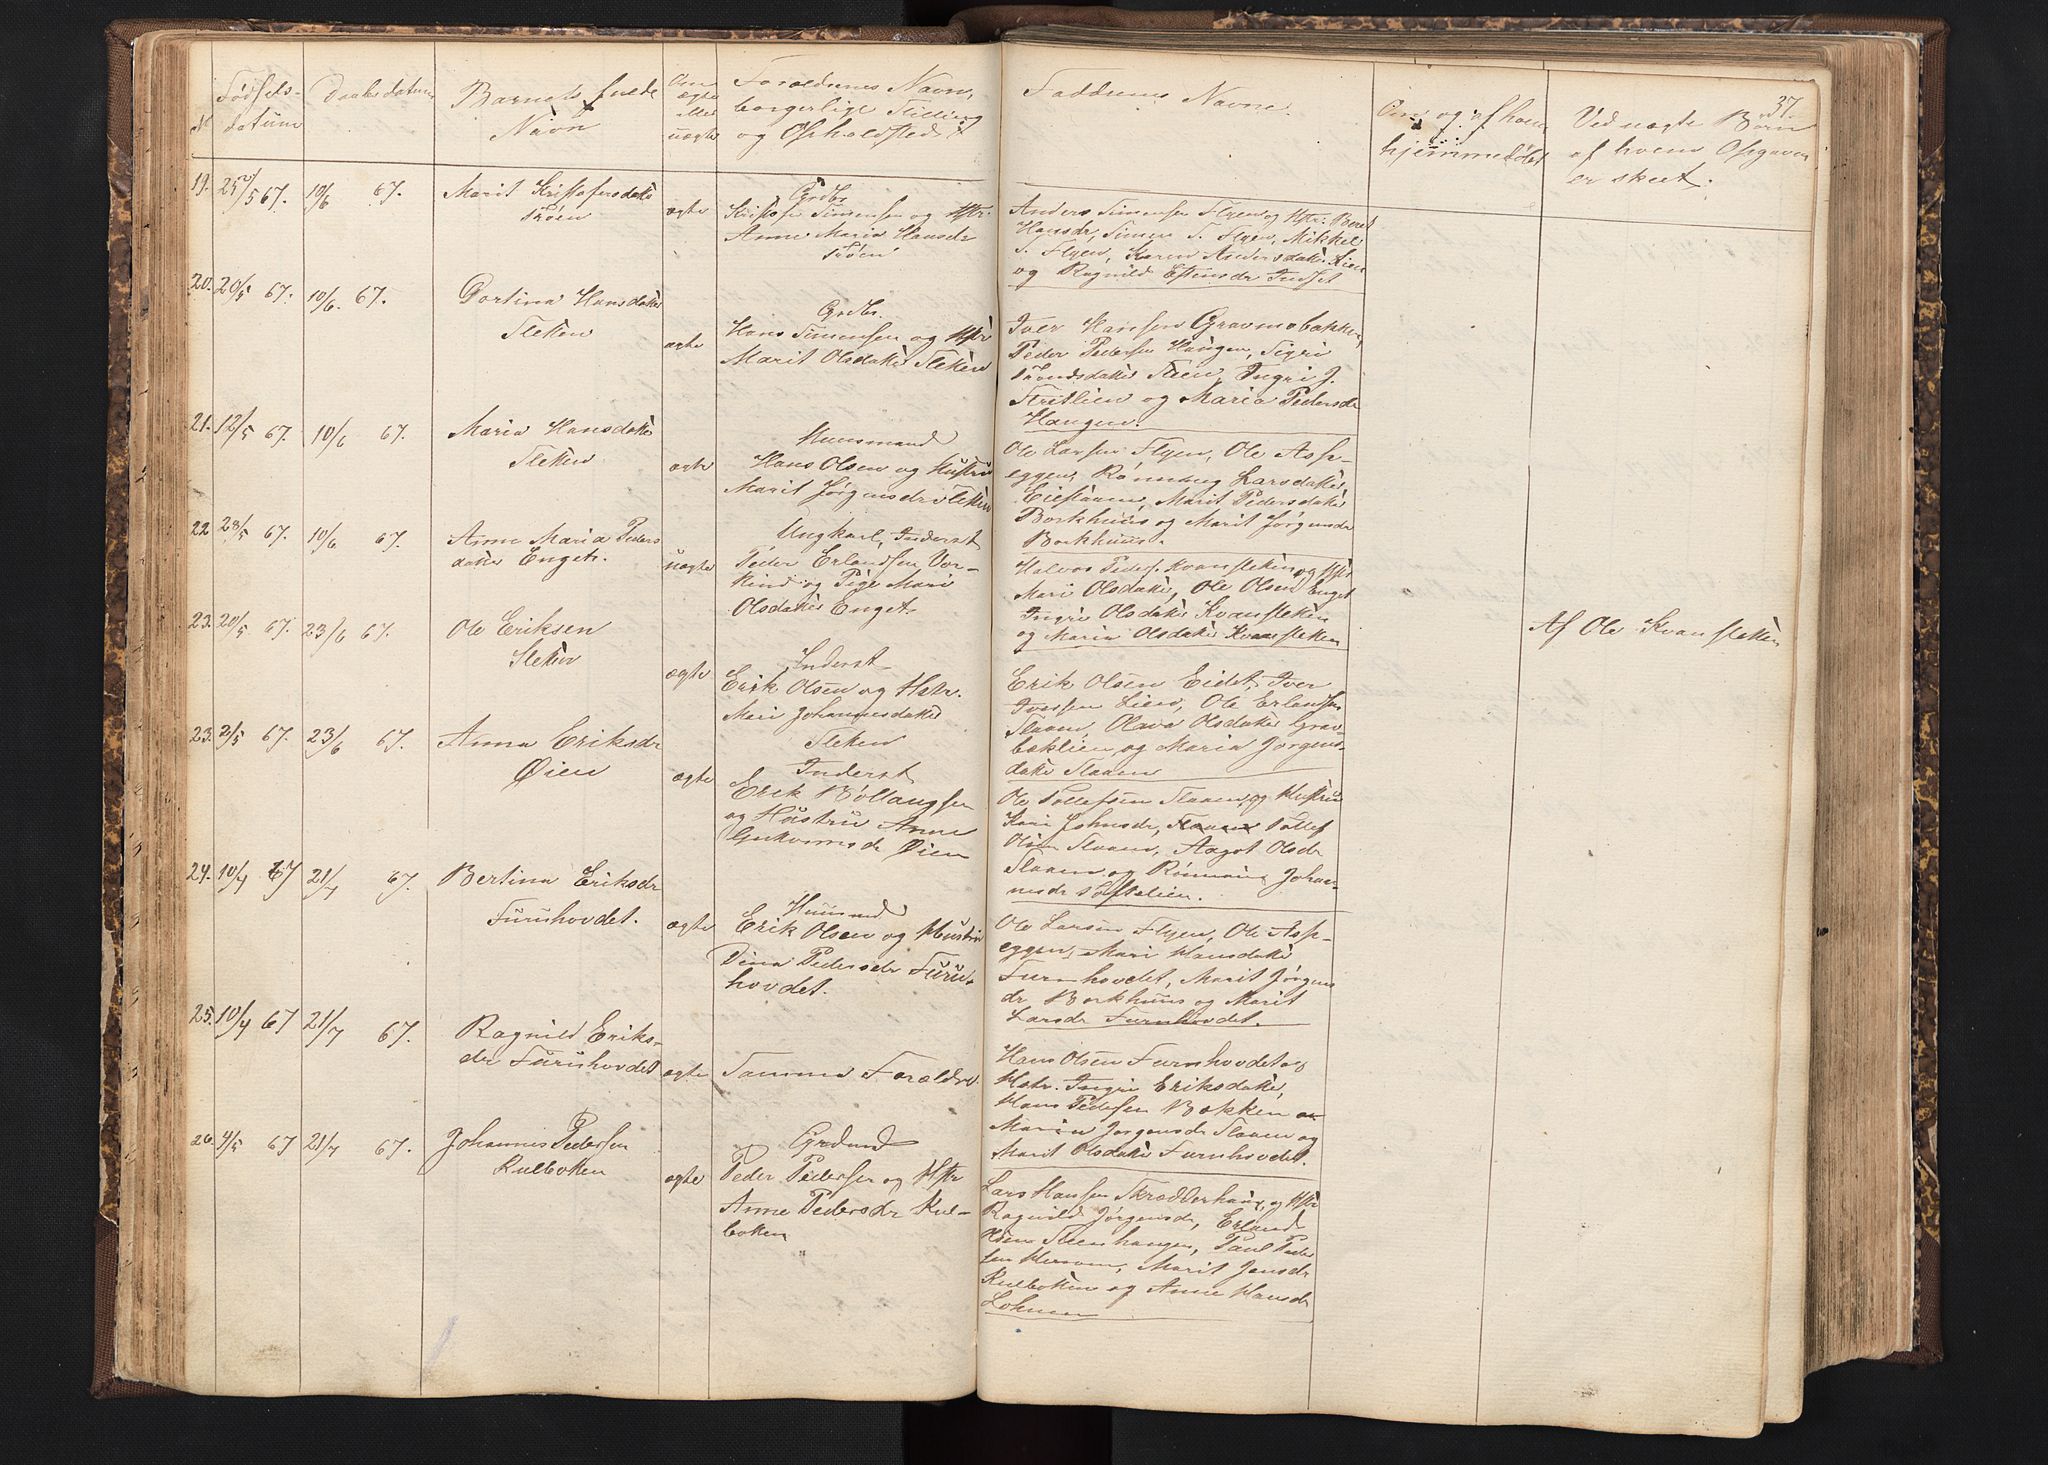 37.
No
Fødsels-
datum
Daabsdatum
Barnets fulde
Navn
Om
ægte
eller
uægte
Forældrenes Navn,
borgerlige Stilling
og Opholdsted
Faddernes Navne.
Om og af hvem
hjemmedøbt
Ved uægte Børn
af hvem Opgaven
er skeet.
19. 25/5 67. 10/6 67.
Marit Kristofersdatter
Trøen
ægte
Grdbr.
Kristofer Simensen og Hstr.
Anne Maria Hansdr
Trøen
Anders Simensen Flyen og Hstr. Beret
Hansdr, Simen S. Flyen, Mikkel
S. Flyen, Karen Andersdatter Lien
og Ragnild Estensdr Indset
20. 20/5 67. 10/6. 67.
Gortina Hansdatter
Sleken
ægte
Grdbr.
Hans Simensen og Hstr
Marit Olsdatter Sleken
Iver Hansen Gravmobakken,
Peder Pedersen Haugen, Sigri
Trondsdatter Steen, Ingri J.
Stretlien og Maria Pedersdr
Haugen.
21. 12/5 67. 10/6 67.
Maria Hansdatter
Sleken
ægte
Huusmand
Hans Olsen og Hustru
Marit Jørgensdr Sleken
Ole Larsen Flyen, Ole Asp-
eggen, Rønnaug Larsdatter
Eidstaaen, Marit Pedersdatter
Borkhuus og Marit Jørgensdr
Borkhuus.
22 28/5 67. 10/6 67.
Anne Maria Peders
datter Enget.
uægte
Ungkarl, Inderst
Peder Erlandsen Vor-
kind og Pige Mari
Olsdatter Enget
Halvor Peders. Kvansleken og Hstr
Mari Olsdatter, Ole Olsen Enget
Ingri Olsdatter Kvansleken
og Maria Olsdatter Kvansleken
Af Ole Kvansleken
23. 20/5 67. 23/6 67.
Ole Eriksen
Sleken
ægte
Inderst
Erik Olsen og Hstr.
Mari Johannesdatter
Sleken
Erik Olsen Eidet, Iver
Iversen Lien, Ole Erlandsen
Slaaen, Olava Olsdatter Grav-
bæklien og Maria Jørgens-
datter Slaaen
23. 2/5 67. 23/6 67.
Anna Eriksdr
Øien
ægte
Inderst
Erik Bøllaugsen
og Hustru Anne
Gulbrandsdr Øien
Ole Tollefsen Slaaen og Hustru
Kari Johnsdr, Slaaen Tollef
Olsen Slaaen, Aagot Olsdr
Slaaen og Rønnaug Johan-
nesdr Toftelien.
24. 10/4 67 21/7 67.
Bertina Eriksdr
Furuhovdet.
ægte
Huusmd
Erik Olsen og Hustru
Dina Pedersdr Furu-
hovdet.
Ole Larsen Flyen, Ole Asp-
eggen, Mari Hansdatter
Furuhovdet, Marit Jørgens
dr Borkhuus og Marit
Larsdr Furuhovdet.
25. 10/4 67 21/7 67.
Ragnild Eriks-
dr Furuhovdet
ægte
Samme Forældre.
Hans Olsen Furuhovdet og
Hstr. Ingri Eriksdatter,
Hans Pedersen Bakken
Maria Jørgensdr Slaaen og
Marit Olsdatter Furuhovdet.
26. 4/5 67 21/7 67.
Johannes Pedersen
Kulboken
ægte
Grdmd
Peder Pedersen og Hstr
Anne Pedersdr Kul-
boken
Lars Hansen Skrædderhaug og Hstr
Ragnild Jørgensdr, Erland
Olsen Steenhaugen, Paul Peder
sen Hersom, Marit Jonsdr
Kulboken og Anne Hansdr
Lohnen